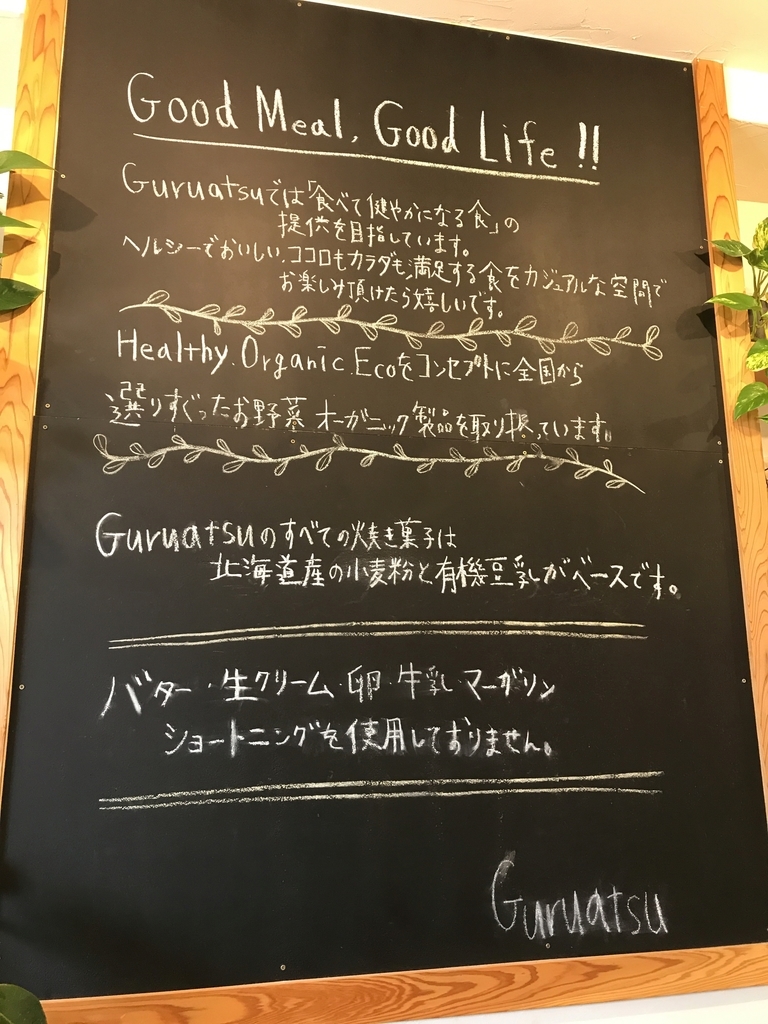 Good Meal, Good Life!!
Guruatsuでは「食べて健やかになる食」の
提供を目指しています。
ヘルシーでおいしい、ココロもカラダも満足する食をカジュアルな空間で
お楽しみ頂けたら嬉しいです。
Healthy.Organic.Ecoをコンセプトに全国から
選りすぐったお野菜 オーガニック製品を取り扱っています。
Guruatsuのすべての焼き菓子は
北海道産の小麦粉と有機豆乳がベースです。
バター・生クリーム・卵・牛乳・マーガリン
ショートニングを使用しておりません。
Guruatsu